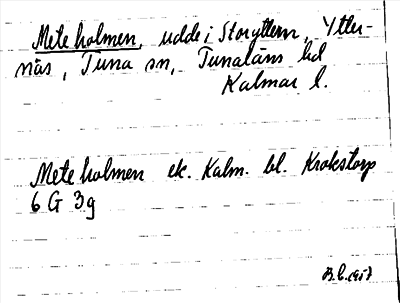 Meteholmen, udde i Storyttern, Ytter-
näs, Tuna sn, Tunaläns hd
Kalmar l.
Meteholmen ek. Kalm. bl. Krokstorp
6 G 3g